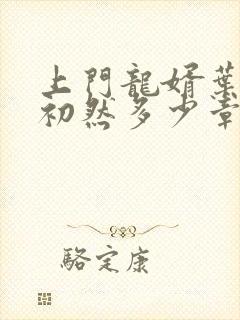 上門龍婿葉
初然多少章
駱定康